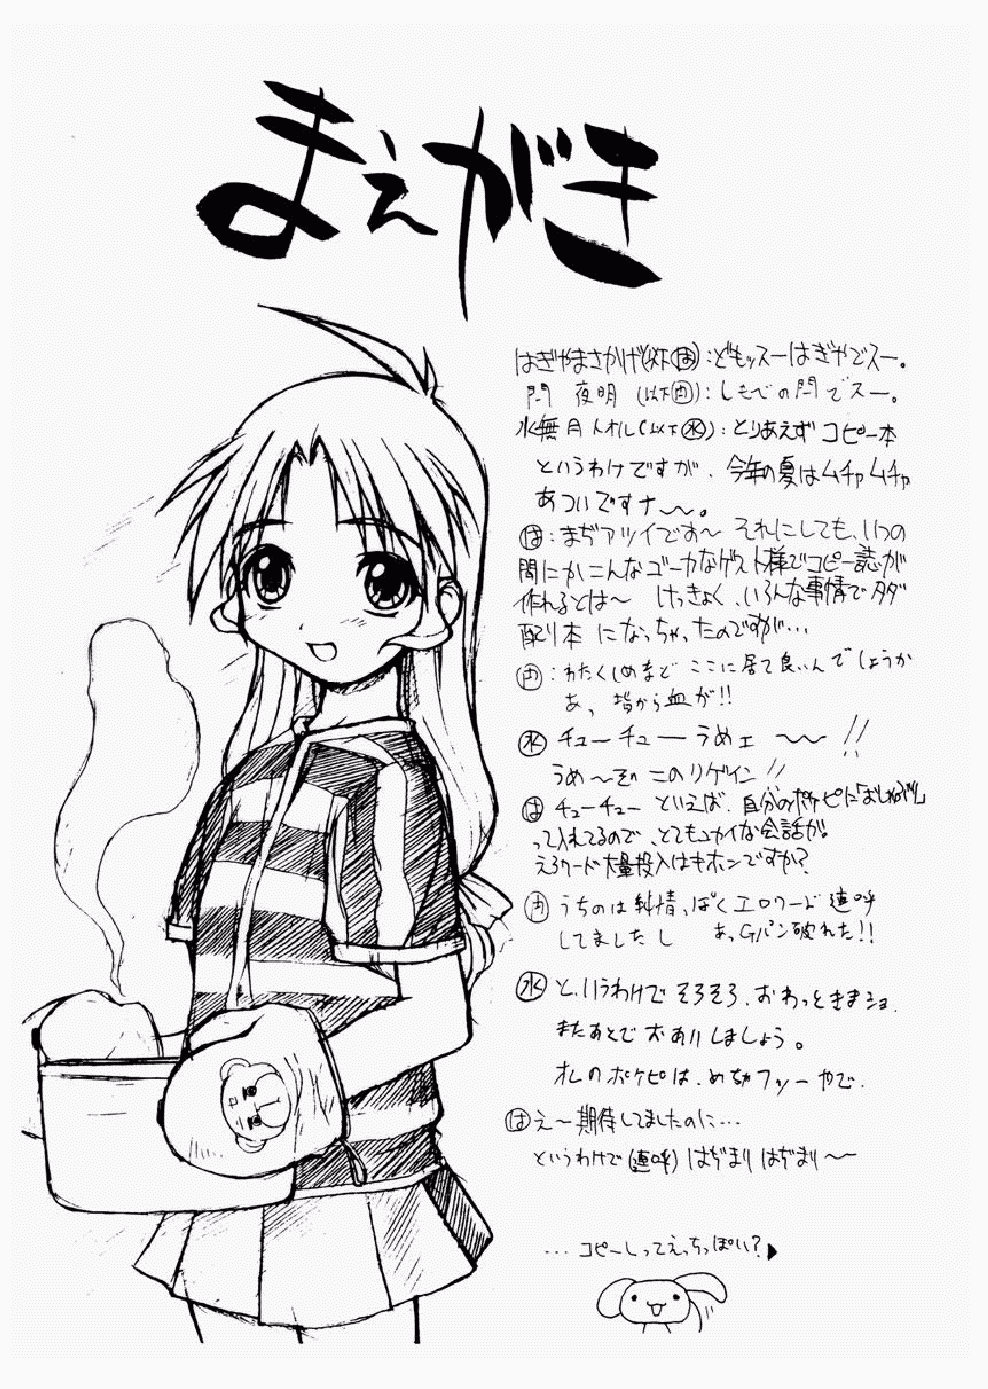 まえがき
はぎやまさかげ(以下は):どもッスーはぎやでスー。
閂 夜明 (以下閂):しもべの閂でスー。
水無月トオル(以下水):とりあえずコピー本
というわけですが、今年の夏はムチャムチャ
あついですナ〜〜。
は:まぢアツイでお〜 それにしても、いつの
間にかこんなゴーカなゲスト様でコピー誌が
作れるとは〜 けっきょく、いろんな事情でタダ
配り本 になっちゃったのですが…
:わたくしめまで ここに居て良いんでしょうか
あっ 指から血が!!
水 チューチューうめェ 〜〜!!
うめ〜ぞぉ このリゲイン!!
は チューチュー といえば、自分のポケピに
って入れてるので、とてもユカイな会話が。
えろワード大量投入はキホンですか?
うちのは純情っぽくエロワード連呼
してましたし あっGパン破れた!!
水 と、いうわけでそろそろ、おわっときまショ.
またあとでお会いしましょう。
オレのポケピは、めちゃフツーやで.
は え〜期待してましたのに…
というわけで(連呼)はぢまりはぢまり〜〜
…コピーしってえっちっぽい?